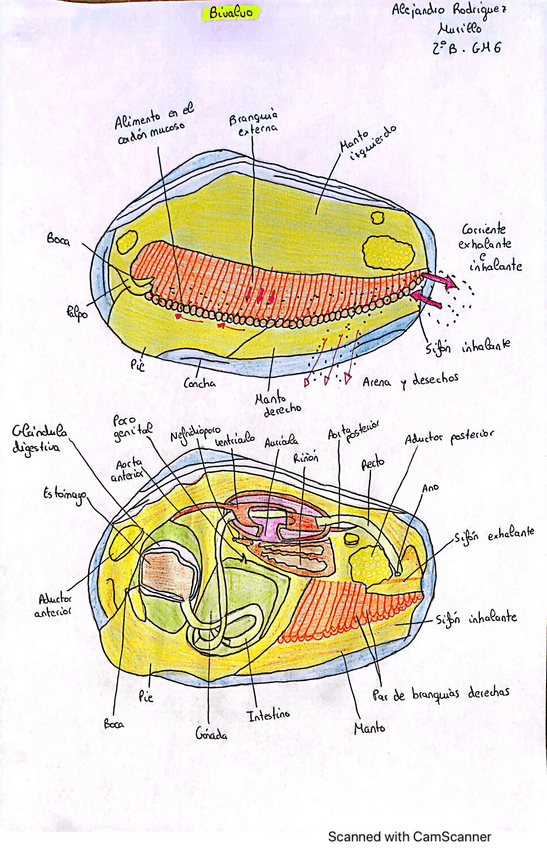 Bivalvo
Alejandro Rodríguez
Murillo
2º B. GM6
Alimento en el
cordón mucoso
Branquia
externa
Manto
izquierdo
Boca
Corriente
exhalante
e
inhalante
Palpo
Sifón inhalante
Pie
Concha
Manto
derecho
Arena y desechos
Glándula
digestiva
Poro
genital
Nefridioporo
ventrículo
Aurícula
Aorta
posterior
Aductor posterior
Aorta
anterior
Riñón
Recto
Estómago
Ano
Sifón exhalante
Aductor
anterior
Sifón inhalante
Pie
Par de branquias derechas
Boca
Gónada
Intestino
Manto
Scanned with CamScanner